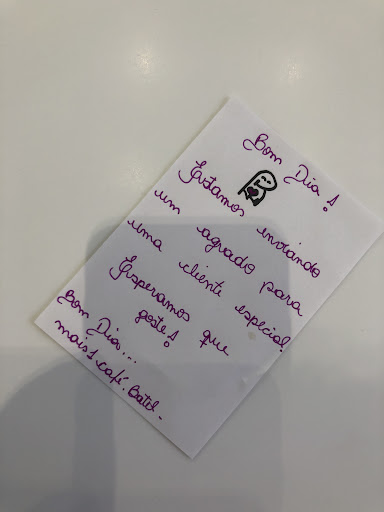 Bom Dia!
Estamos enviando
um agrado para
uma cliente especial
Esperamos que
goste!
Bom Dia...
mais1.café.Batel.